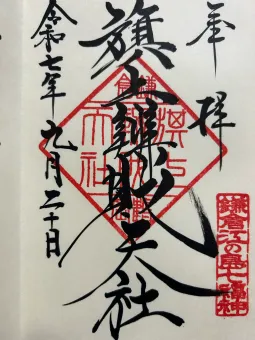 奉拝
旗上弁財天社
令和七年九月二十日
鎌倉江の島七福神